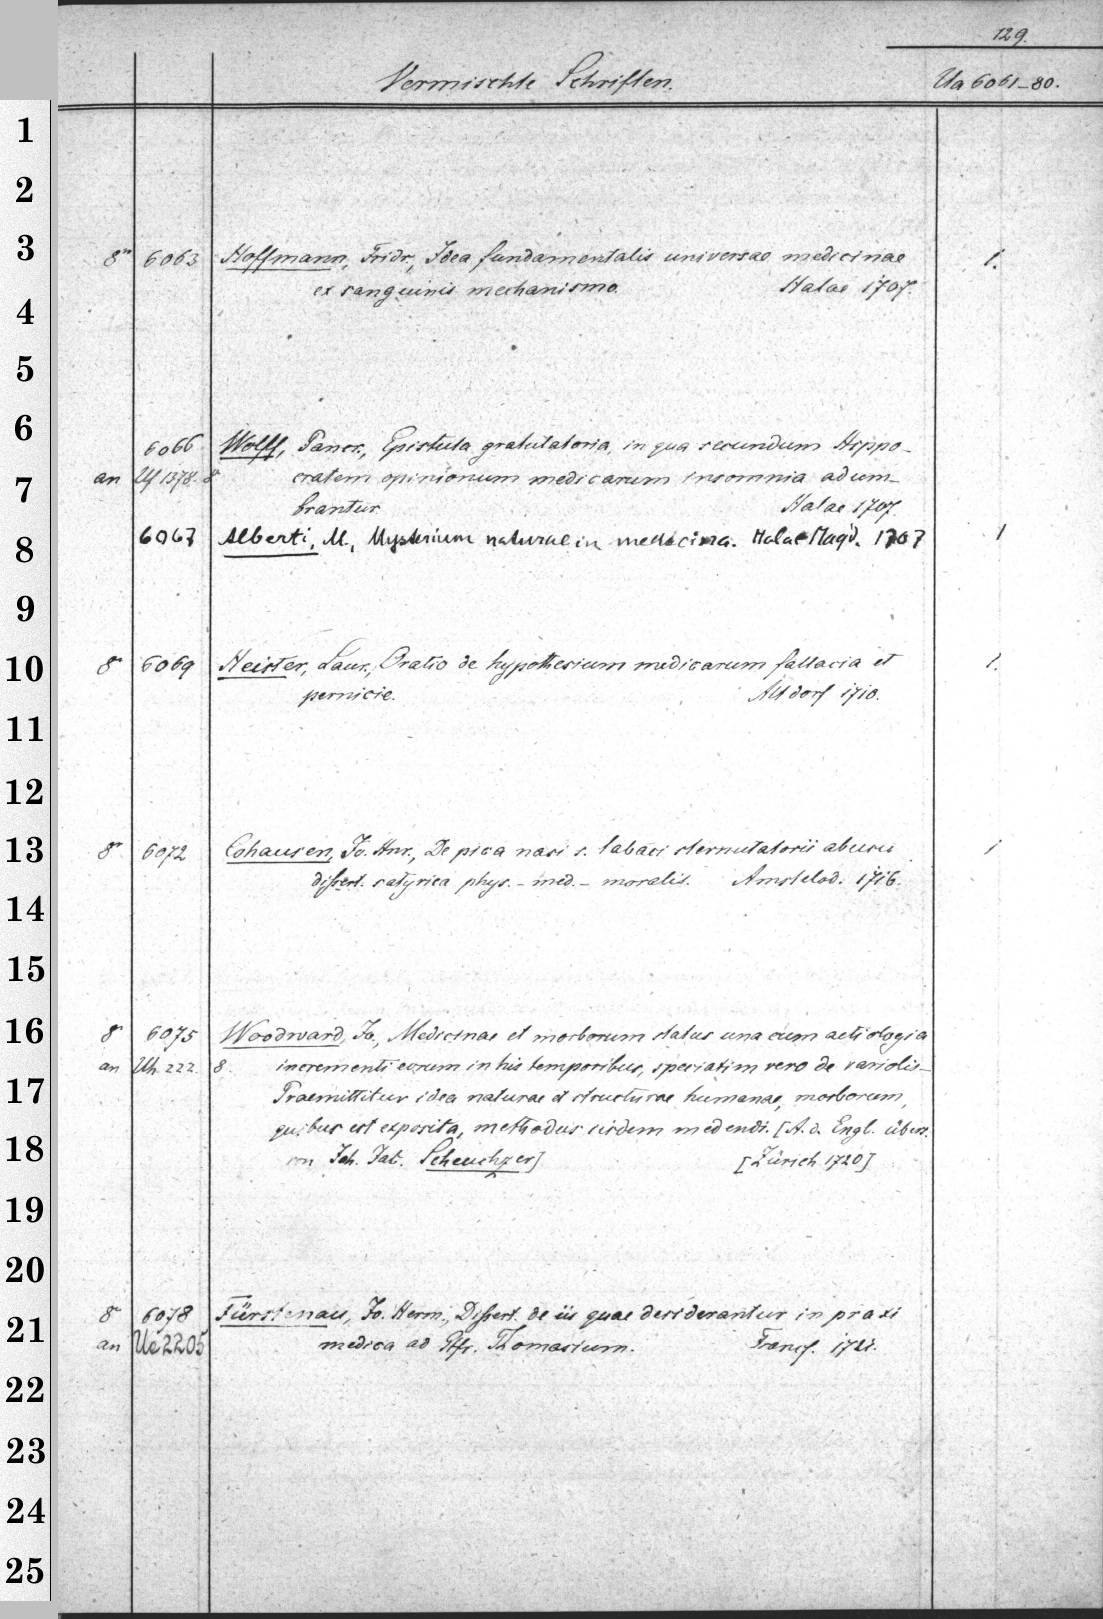 129.
Vermischte Schriften. Ua 6061-80.
1
2
3 8° 6063 Hoffmann, Fridr., Idea fundamentalis universae medicinae 1.
ex sanguinis mechanismo. Halae 1707.
4
5
6 6066 Wolff, Pancr., Epistula gratulatoria, in qua secundum Hippo-
7 an Uf 1378. 8° cratem opinionum medicarum insomnia adum-
brantur Halae 1707.
8 6067 Alberti, M., Mysterium naturae in medicina. Halae Magd. 1707 1
9
10 8° 6069 Heister, Laur., Oratio de hypothesium medicarum fallacia et 1.
pernicie. Altdorf 1710.
11
12
13 8° 6072 Cohausen, Jo. Hnr., De pica nasi s. tabaci sternutatorii abusu 1
dissert. satyrica phys.-med.-moralis. Amstelod. 1716.
14
15
16 8° 6075 Woodward, Jo., Medicinae et morborum status una cum aetiologia
an Uh. 222. 8. incrementi eorum in his temporibus, speciatim vero de variolis_
17 Praemittitur idea naturae et structurae humanae, morborum,
quibus est exposita, methodus iisdem medendi. [A. d. Engl. übers.
18 von Joh. Jat. Scheuchzer] [Zürich 1720]
19
20
21 8° 6078 Fürstenau, Jo. Herm., Dissert. de iis quae desiderantur in praxi
an Ue 2205 medica ad Gfr. Thomasium. Francf. 1721.
22
23
24
25